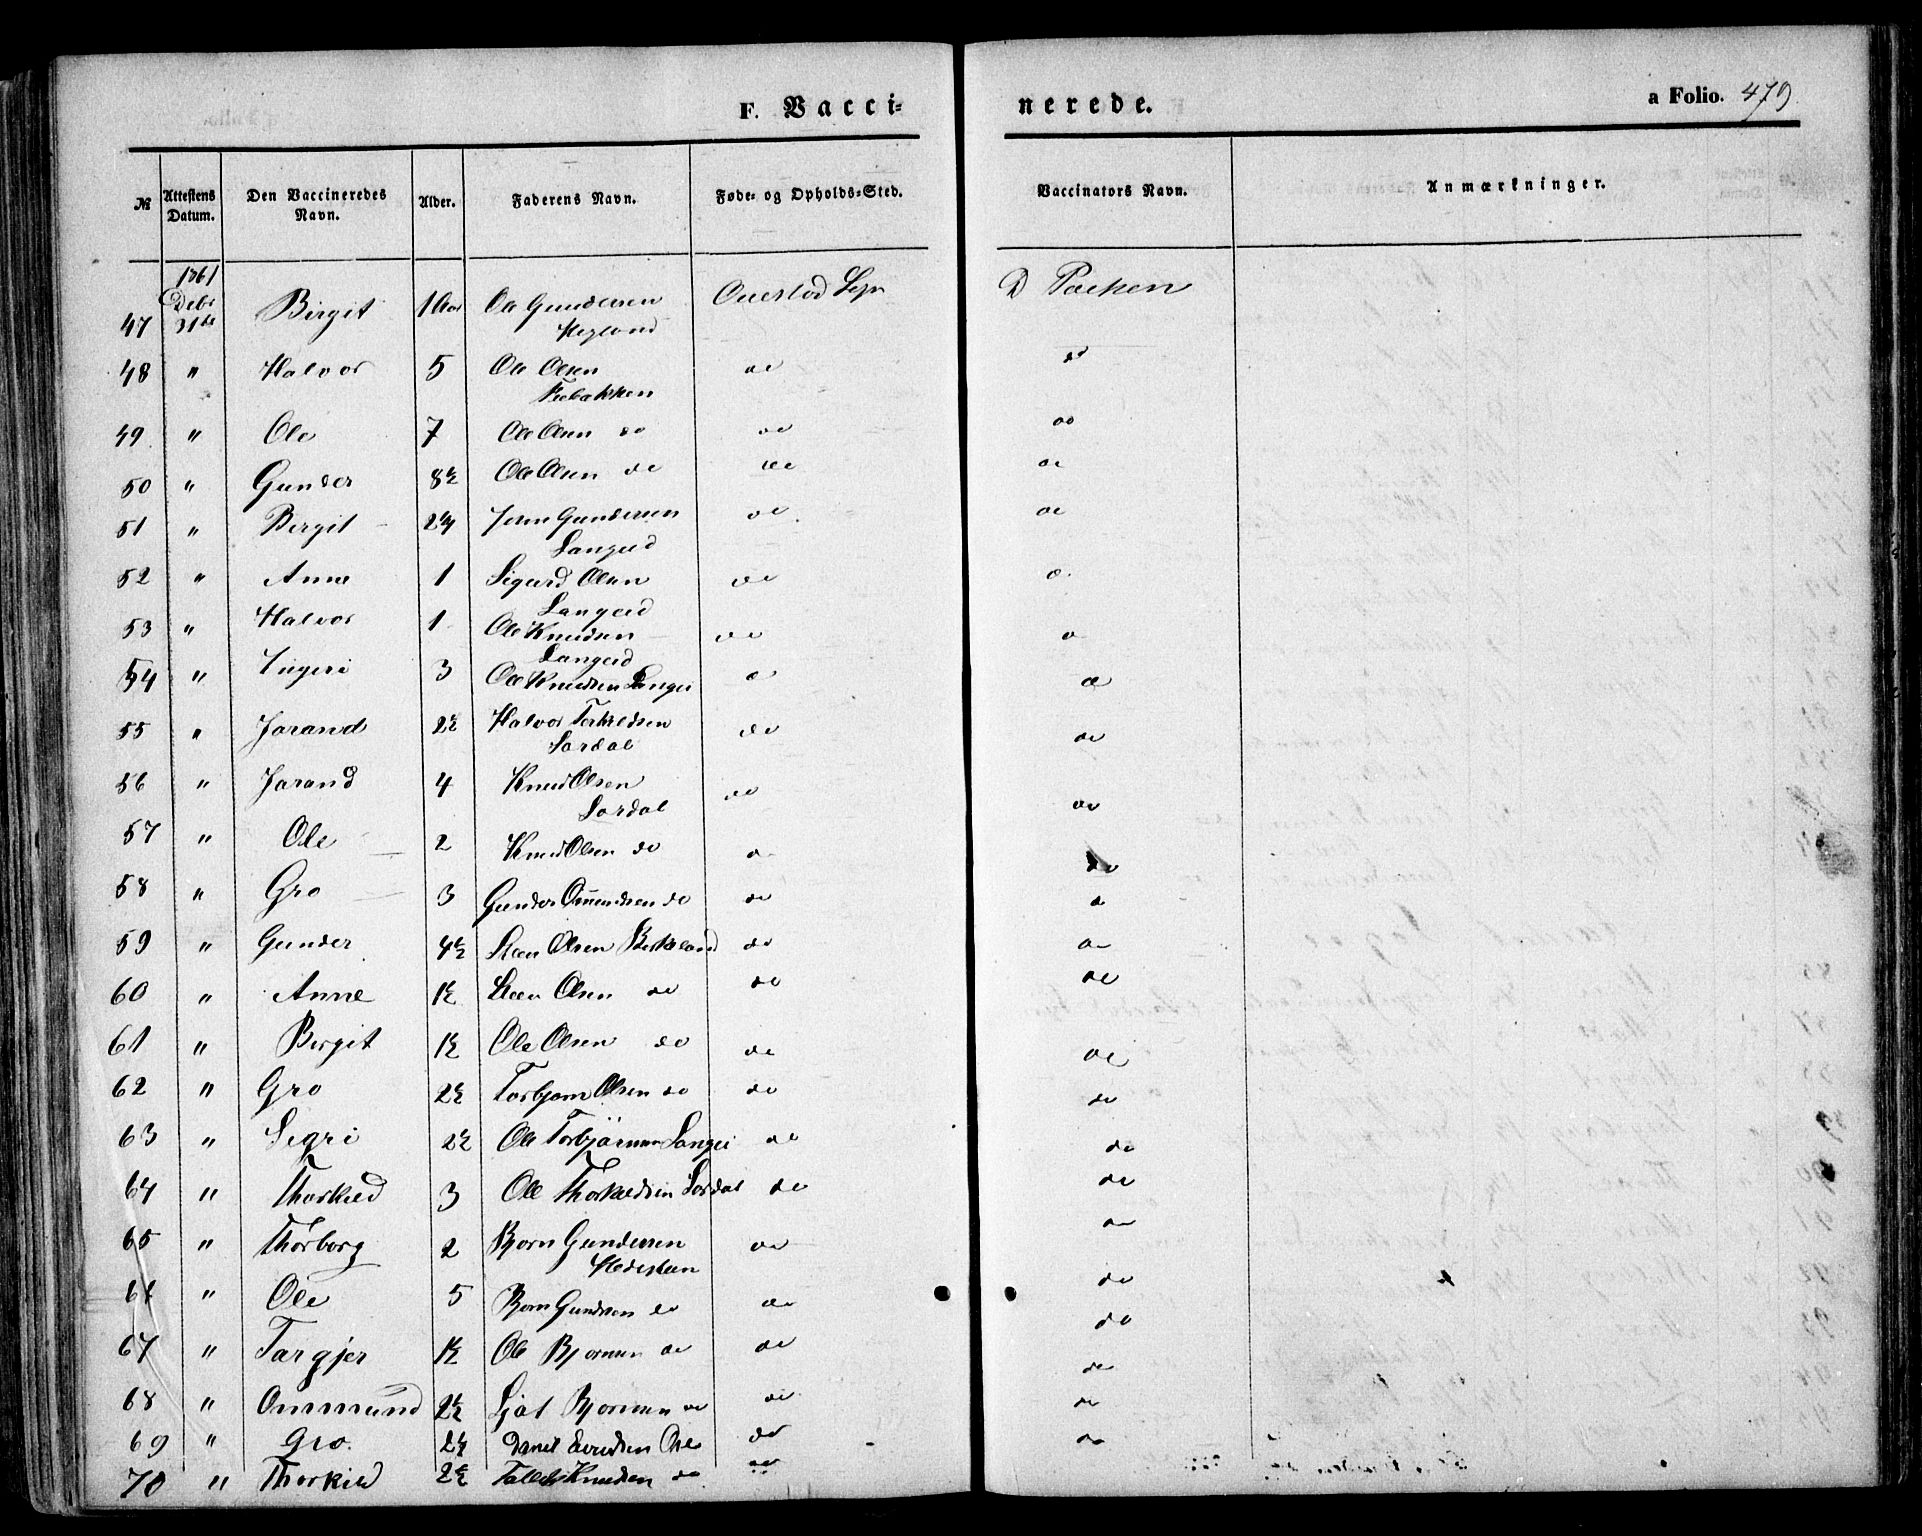 F. Vacci=
nerede.
a Folio. 479
№ Attestens Datum. Den Vaccineredes Navn. Alder. Faderens Navn. Føde= og Opholds=Sted. Vaccinators Navn. Anmærkninger.
1861
47 Debr 31te Birgit 1 Aar Ole Gundersen Sogn D
Hegland
48 " Halvor 5 Ole Olsen do do
49 " Ole 7 Ole Olsen do do do
50 " Gunder 8½ Ole Olsen do do do
51 " Birgit Gundersen do do
Langeid
52 " Anne 1 Sigurd Olsen do
Langeid
53 " Halvor 1 Ole Knudsen do
Langeid
54 " Ingeri 3 Ole Knudsen Langei do
55 " Jorand 2½ Halvor Torkildsen do do
Lordal
56 " Jorand 4 Knud Olsen do do
Lordal
57 " Ole 2 Knud Olsen do do do
58 " Gro 3 Gunder Omundsen do do
59 " Gunder 4½ Olsen Birkeland do do
60 " Anne 1½ Olsen do do do
61 " Birgit 1½ Ole Olsen do do do
62 " Gro 2½ Torbjørn Olsen do do do
63 " Sigri 2½ Ole Torbjørnsen Langei do do
64 " Thorkild 3 Ole Thorkildsen Lordal do do
65 " Thorborg 2 Bjorn Gundersen do do
66 " Ole 5 Bjorn Gundersen do do do
67 " Targjer 1½ Ole Bjornsen do do do
68 " Ommund 2½ Ljot Bjornsen do do do
69 " Gro 2½ Daniel Ose do do
70 " Thorkild 2½ Knudsen do do